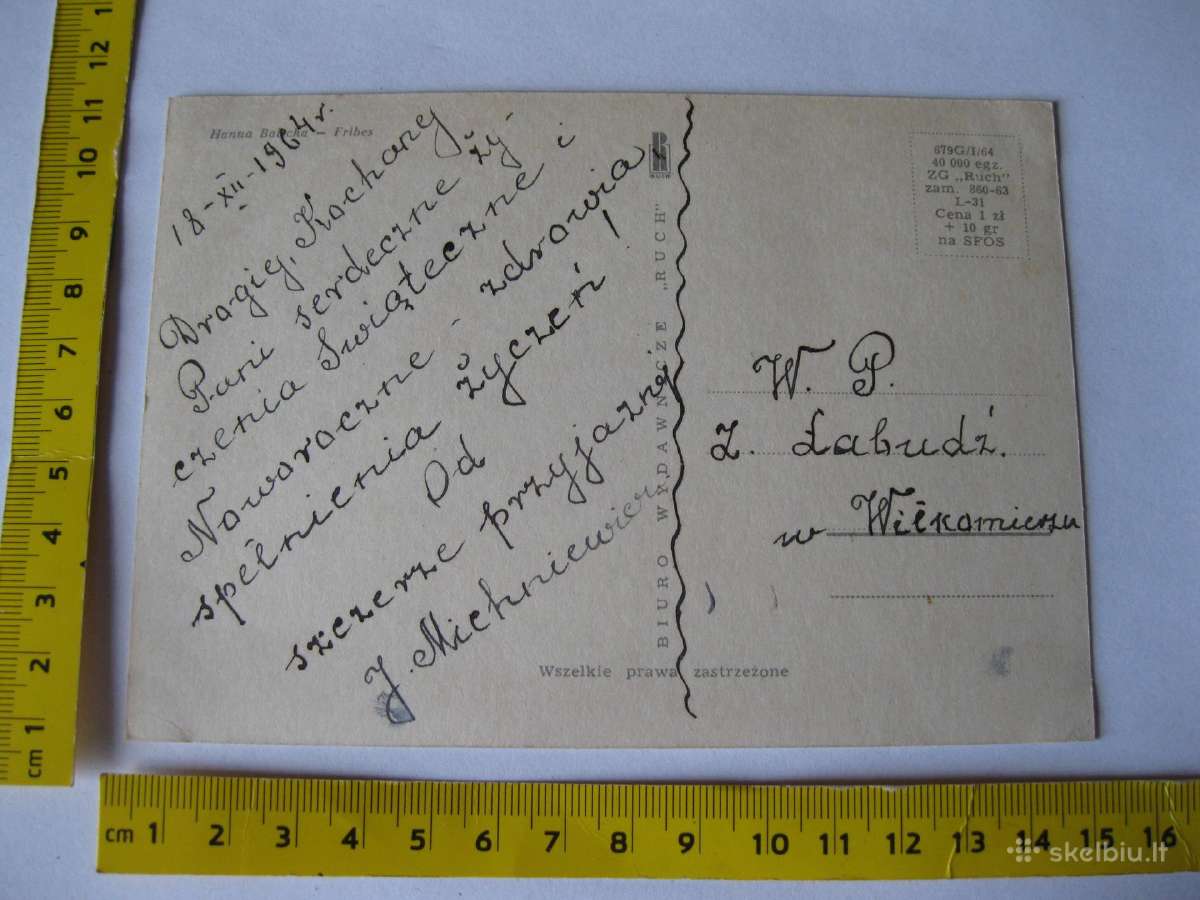 Hanna Balicka – Fribes
18-XII-1964r.
Drogiej, Kochanej
Pani serdeczne ży-
czenia Świąteczne i
Noworoczne - zdrowia,
spełnienia życzeń!
Od
szczerze przyjaznej
J. Michniewicz
BIURO WYDAWNICZE „RUCH"
RUCH
679G/I/64
40 000 egz.
ZG „Ruch"
zam. 860-63
L-31
Cena 1 zł
+ 10 gr
na SFOS
W. P.
Z. Łabudź.
w Wiłkomierzu
Wszelkie prawa zastrzeżone
cm 1 2 3 4 5 6 7 8 9 10 11 12 1
cm 1 2 3 4 5 6 7 8 9 10 11 12 13 14 15 16
skelbiu.lt